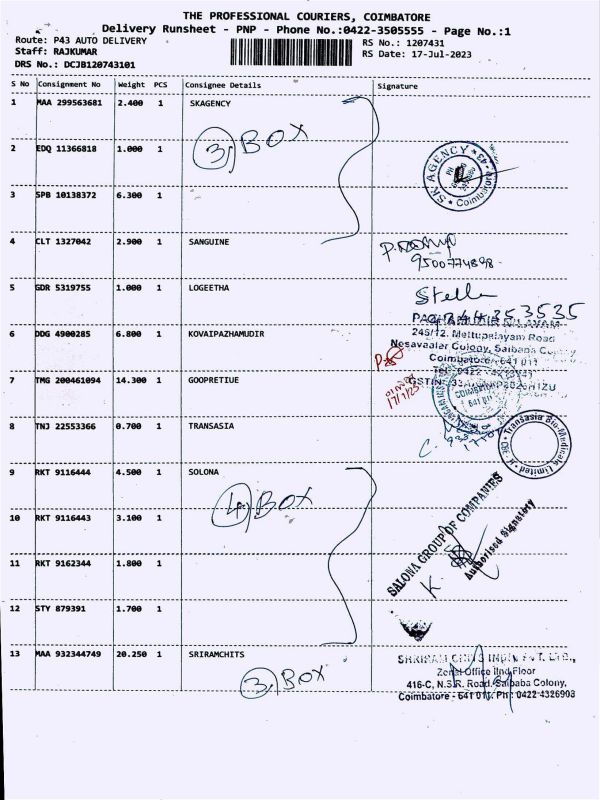 THE PROFESSIONAL COURIERS, COIMBATORE
Delivery Runsheet - PNP - Phone No.:0422-3505555 - Page No.:1
Route: P43 AUTO DELIVERY
RS No.: 1207431
Staff: RAJKUMAR
RS Date: 17-Jul-2023
DRS No.: DCJB120743101
S No Consignment No Weight PCS Consignee Details Signature
1 MAA 299563681 2.400 1 SKAGENCY
3, BOX
2 EDQ 11366818 1.000 1
SK AGENCY * 43 * Coimbatore
3 SPB 10138372 6.300 1
4 CLT 1327042 2.900 1 SANGUINE
9500774898
5 GDR 5319755 1.000 1 LOGEETHA
Stella
353535
6 DDG 4900285 6.800 1 KOVAIPAZHAMUDIR
245/12, Mettupalayam Road
Nesavaalar Colony, Saibaba Colony
Coimbatore - 641 011
7 TMG 200461094 14.300 1 GOOPRETIUE
17/7/23
COIMBATORE
641 011
8 TNJ 22553366 0.700 1 TRANSASIA
Transasia Bio-Medicals Limited
9 RKT 9116444 4.500 1 SOLONA
4, BOX
SALONA GROUP OF COMPANIES
Authorised Signatory
10 RKT 9116443 3.100 1
11 RKT 9162344 1.800 1
12 STY 879391 1.700 1
13 MAA 932344749 20.250 1 SRIRAMCHITS
3, BOX
SHRIRAM CHITS INDIA PVT. LTD.,
Zonal Office IInd Floor
416-C, N.S.R. Road, Saibaba Colony,
Coimbatore - 641 011. Ph : 0422 4326903